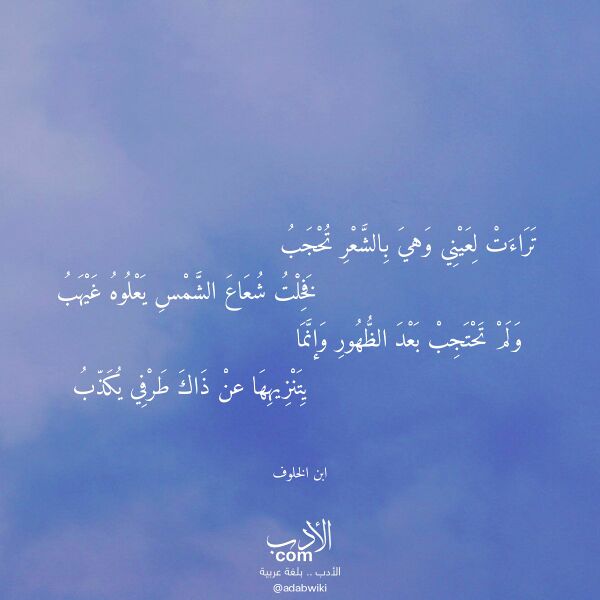 تَرَاءَتْ لِعَيْنِي وَهيَ بِالشَّعْرِ تُحْجَبُ
فَخِلْتُ شُعَاعَ الشَّمْسِ يَعْلُوهُ غَيْهَبُ
وَلَمْ تَحْتَجِبْ بَعْدَ الظُّهُورِ وَإِنَّمَا
بِتَنْزِيهِهَا عنْ ذَاكَ طَرْفِي يُكَذّبُ
ابن الخلوف
الأدب
com
الأدب .. بلغة عربية
@adabwiki